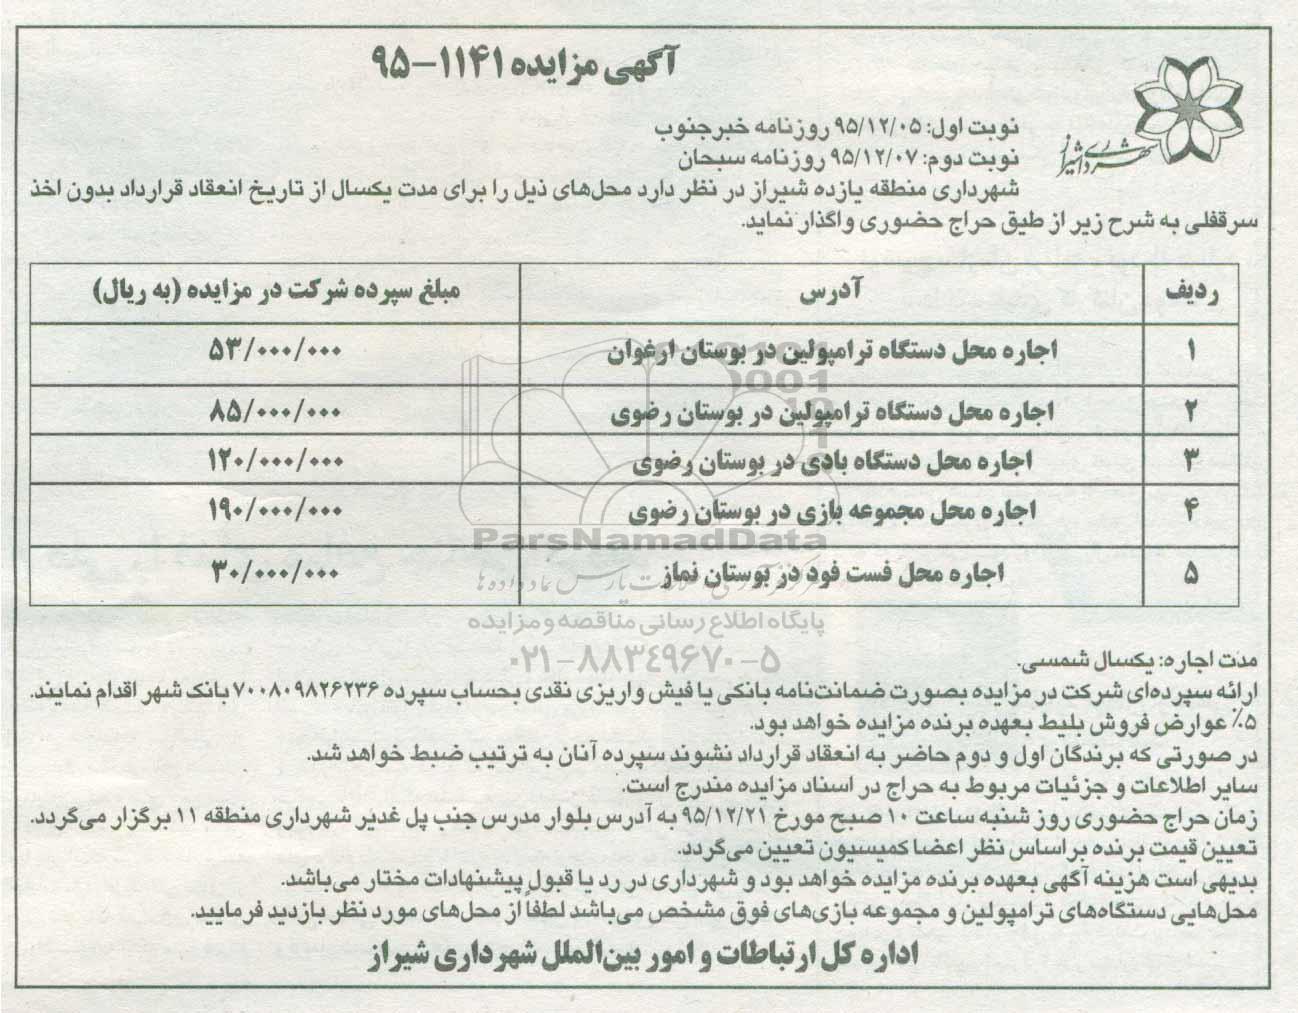 آگهی مزایده ۱۱۴۱-۹۵
شهرداری شیراز
نوبت اول: ۹۵/۱۲/۰۵ روزنامه خبرجنوب
نوبت دوم: ۹۵/۱۲/۰۷ روزنامه سبحان
شهرداری منطقه یازده شیراز در نظر دارد محل‌های ذیل را برای مدت یکسال از تاریخ انعقاد قرارداد بدون اخذ
سرقفلی به شرح زیر از طیق حراج حضوری واگذار نماید.
ردیف آدرس مبلغ سپرده شرکت در مزایده (به ریال)
۱ اجاره محل دستگاه ترامپولین در بوستان ارغوان ۵۳/۰۰۰/۰۰۰
۲ اجاره محل دستگاه ترامپولین در بوستان رضوی ۸۵/۰۰۰/۰۰۰
۳ اجاره محل دستگاه بادی در بوستان رضوی ۱۲۰/۰۰۰/۰۰۰
۴ اجاره محل مجموعه بازی در بوستان رضوی ۱۹۰/۰۰۰/۰۰۰
۵ اجاره محل فست فود در بوستان نماز ۳۰/۰۰۰/۰۰۰
ParsNamadData
پایگاه اطلاع رسانی مناقصه و مزایده
۰۲۱-۸۸۳۴۹۶۷۰-۵
مدت اجاره: یکسال شمسی.
ارائه سپرده‌ای شرکت در مزایده بصورت ضمانت‌نامه بانکی یا فیش واریزی نقدی بحساب سپرده ۷۰۰۸۰۹۸۲۶۲۳۶ بانک شهر اقدام نمایند.
۵٪ عوارض فروش بلیط بعهده برنده مزایده خواهد بود.
در صورتی که برندگان اول و دوم حاضر به انعقاد قرارداد نشوند سپرده آنان به ترتیب ضبط خواهد شد.
سایر اطلاعات و جزئیات مربوط به حراج در اسناد مزایده مندرج است.
زمان حراج حضوری روز شنبه ساعت ۱۰ صبح مورخ ۹۵/۱۲/۲۱ به آدرس بلوار مدرس جنب پل غدیر شهرداری منطقه ۱۱ برگزار می‌گردد.
تعیین قیمت برنده براساس نظر اعضا کمیسیون تعیین می‌گردد.
بدیهی است هزینه آگهی بعهده برنده مزایده خواهد بود و شهرداری در رد یا قبول پیشنهادات مختار می‌باشد.
محل‌هایی دستگاه‌های ترامپولین و مجموعه بازی‌های فوق مشخص می‌باشد لطفاً از محل‌های مورد نظر بازدید فرمایید.
اداره کل ارتباطات و امور بین‌الملل شهرداری شیراز